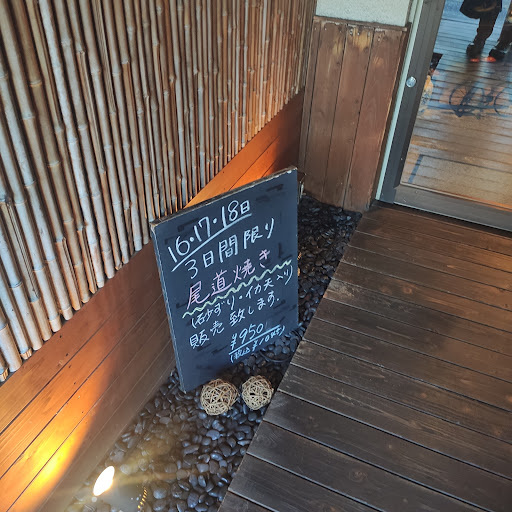 16・17・18日
3日間限り
尾道焼き
(砂ずり・イカ天入り)
販売致します。
¥950
(税込